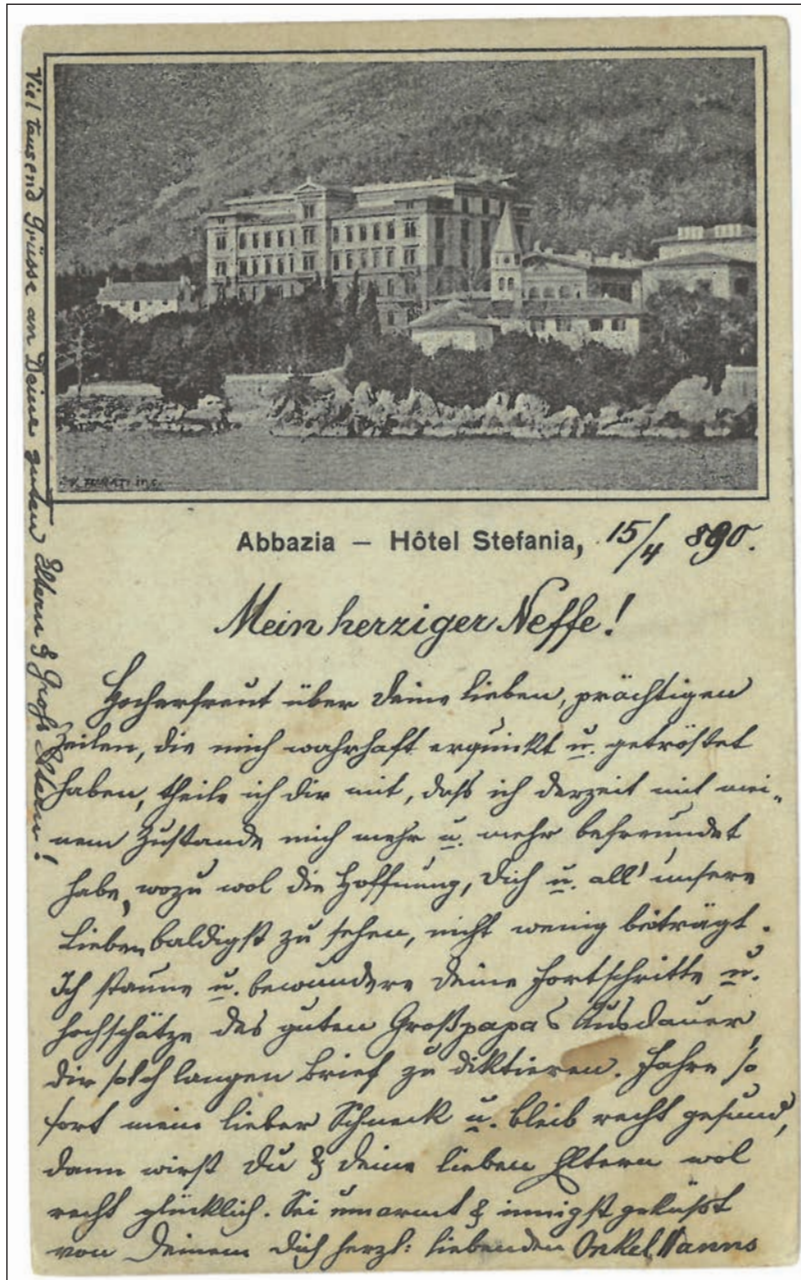 V. TURATI inc.
Abbazia – Hôtel Stefania, 15/4 890.
Mein herziger Neffe!
Hocherfreut über Deine lieben, prächtigen
Zeilen, die mich wahrhaft erquickt u. getröstet
haben, theile ich Dir mit, daß ich derzeit mit mei-
nem Zustande mich mehr u. mehr befreundet
habe, wozu wol die Hoffnung, Dich u. all' unsere
Lieben baldigst zu sehen, nicht wenig beiträgt.
Ich staune u. bewundere Deine Fortschritte u.
hochschätze des guten Großpapas Ausdauer,
Dir solch langen Brief zu diktieren. Fahre so
fort mein lieber Schneck u. bleib recht gesund,
dann wirst Du & Deine lieben Eltern wol
recht glücklich. Sei umarmt & innigst geküßt
von Deinem Dich herzl: liebenden Onkel Hanns
Viel tausend Grüsse an Deine guten Eltern & Groß Eltern!